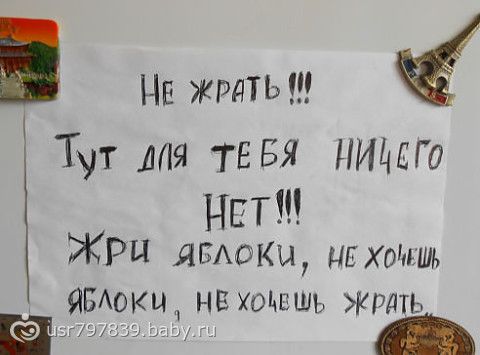 НЕ ЖРАТЬ!!!
ТУТ ДЛЯ ТЕБЯ НИЧЕГО
НЕТ!!!
ЖРИ ЯБЛОКИ, НЕ ХОЧЕШЬ
ЯБЛОКИ, НЕ ХОЧЕШЬ ЖРАТЬ..
usr797839.baby.ru